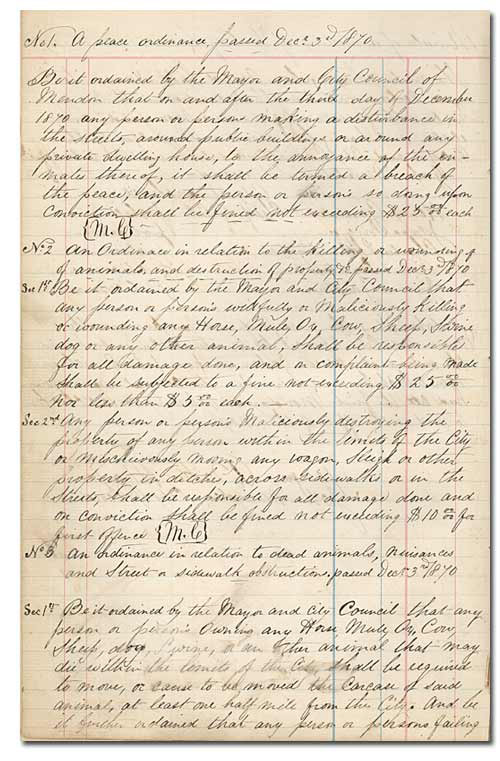 No 1. A peace ordinance, passed Dec. 3rd 1870
Be it ordained by the Mayor and City Council of
Mendon that on and after the third day of December
1870 any person or persons making a disturbance in
the streets, around public buildings or around any
private dwelling house, to the annoyance of the in-
mates thereof, it shall be termed a breach of
the peace, and the person or persons so doing upon
Conviction shall be fined not exceeding $25 00 each
{M. C}
No 2 An Ordinace in relation to the Killing or wounding of
of animals, and destruction of property &c passed Dec. 3rd 1870
Sec 1st Be it ordained by the Mayor and City Council that
any person or persons wilfully or Maliciously Killing
or wounding any Horse, Mule, Ox, Cow, Sheep, Swine
dog or any other animal, shall be responsible
for all damage done, and on complaint being made
shall be subjected to a fine not exceeding $25 00
nor less than $5 00 each.
Sec 2nd Any person or persons Maliciously destroying the
property of any person within the limits of the City
or Mischievously moving any wagon, Sleigh or other
property in ditches, across sidewalks or in the
Streets, shall be responsible for all damage done and
on conviction shall be fined not exceeding $10 00 for
first offence {M. C}
No 3 An ordinance in relation to dead animals, nuisances
and Street or sidewalk obstructions, passed Dec. 3rd 1870
Sec 1st Be it ordained by the Mayor and City Council that any
person or persons Owning any Horse, Mule, Ox, Cow,
Sheep, dog, Swine, or an other animal that may
die within the limits of the City, shall be required
to move, or cause to be moved the carcase of said
animal, at least one half mile from the City. And be
it further ordained that any person or persons failing